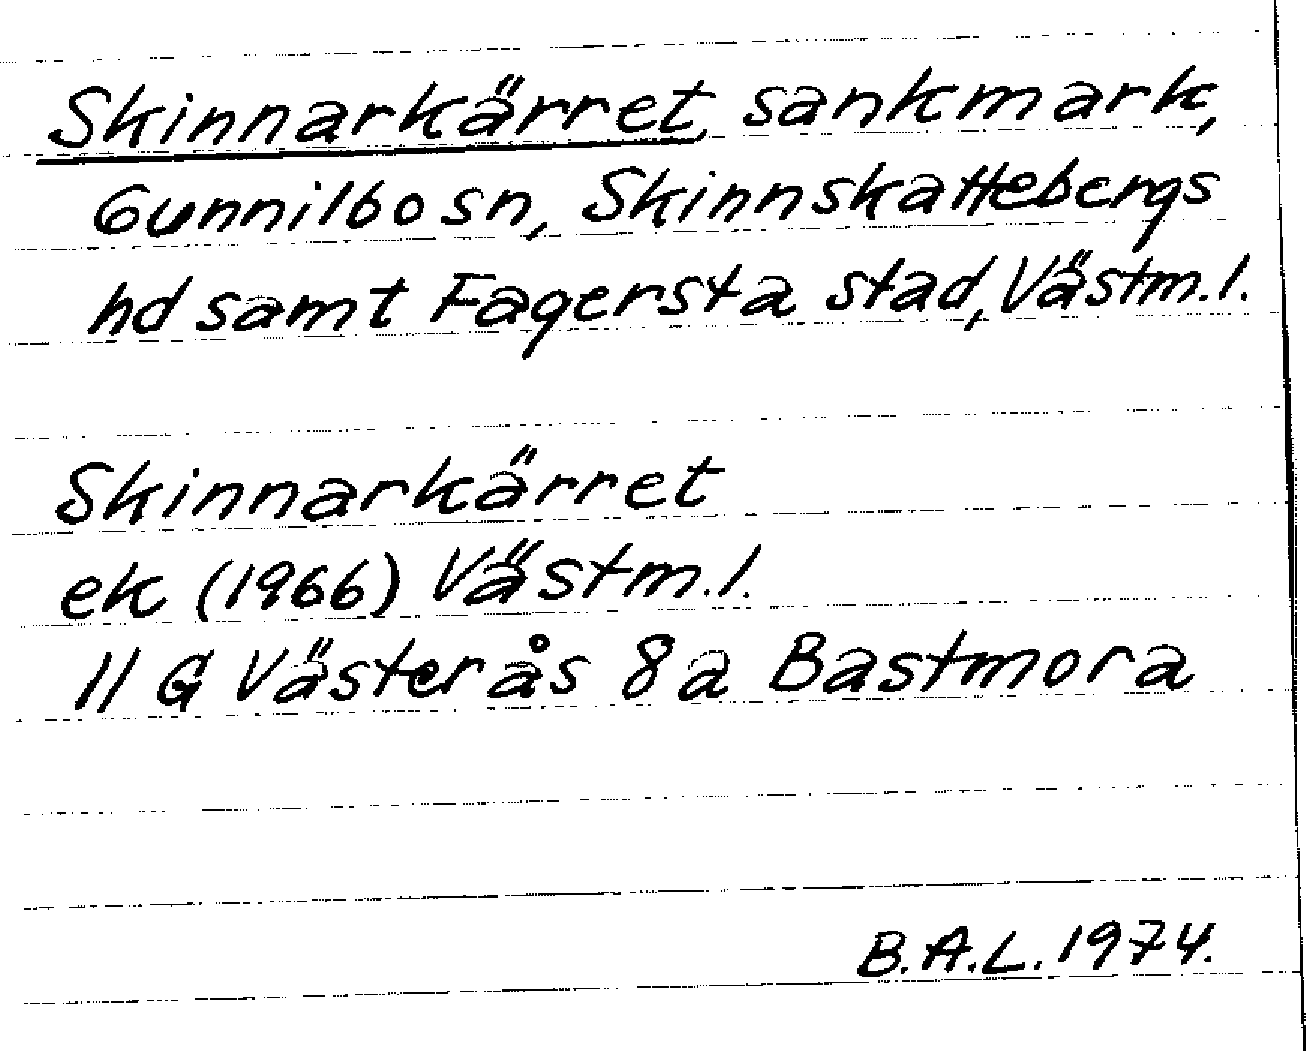 Skinnarkärret, sankmark,
Gunnilbo sn, Skinnskattebergs
hd samt Fagersta stad, Västm. l.
Skinnarkärret
ek (1966) Västm. l.
11 G Västerås 8a Bastmora
B.A.L. 1974.